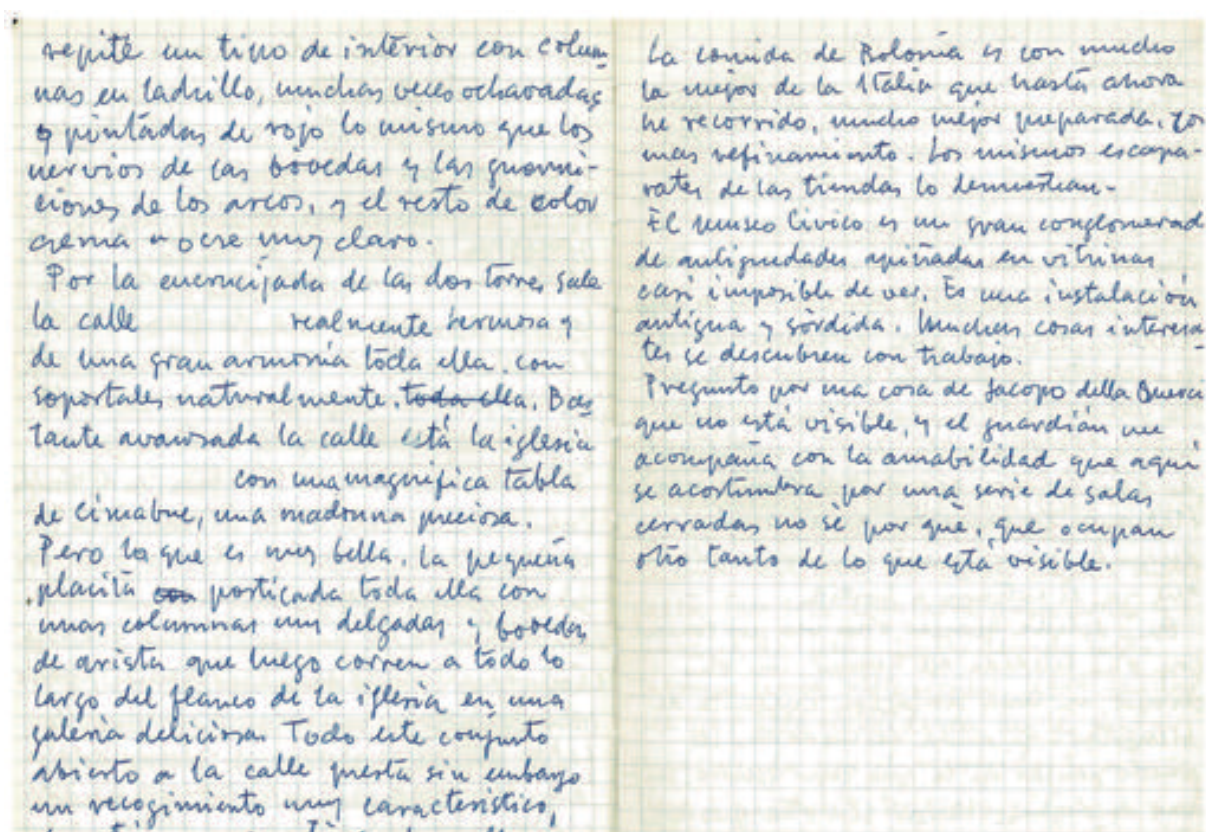 repite un tipo de interior con colum
nas en ladrillo, muchas veces ochavadas
y pintadas de rojo lo mismo que los
nervios de las bovedas y las guarni-
ciones de los arcos, y el resto de color
crema u ocre muy claro.
Por la encrucijada de las dos torres sale
la calle realmente hermosa y
de una gran armonía toda ella. con
soportales naturalmente. toda ella. Bas
tante avanzada la calle está la iglesia
con una magnifica tabla
de Cimabue, una madonna preciosa.
Pero lo que es muy bella. la pequeña
placita con porticada toda ella con
unas columnas muy delgadas y bovedas
de arista que luego corren a todo lo
largo del flanco de la iglesia en una
galeria deliciosa. Todo este conjunto
abierto a la calle presta sin embargo
un recogimiento muy caracteristico,
La comida de Bolonia es con mucho
la mejor de la Italia que hasta ahora
he recorrido, mucho mejor preparada, con
mas refinamiento. Los mismos escapa-
rates de las tiendas lo demuestran-
El museo Civico es un gran conglomerad
de antiguedades apiñadas en vitrinas
casi imposible de ver. Es una instalación
antigua y sórdida. Muchas cosas interesan
tes se descubren con trabajo.
Pregunto por una cosa de Jacopo della Querci
que no está visible, y el guardián me
acompaña con la amabilidad que aqui
se acostumbra por una serie de salas
cerradas no sé por qué, que ocupan
otro tanto de lo que está visible.